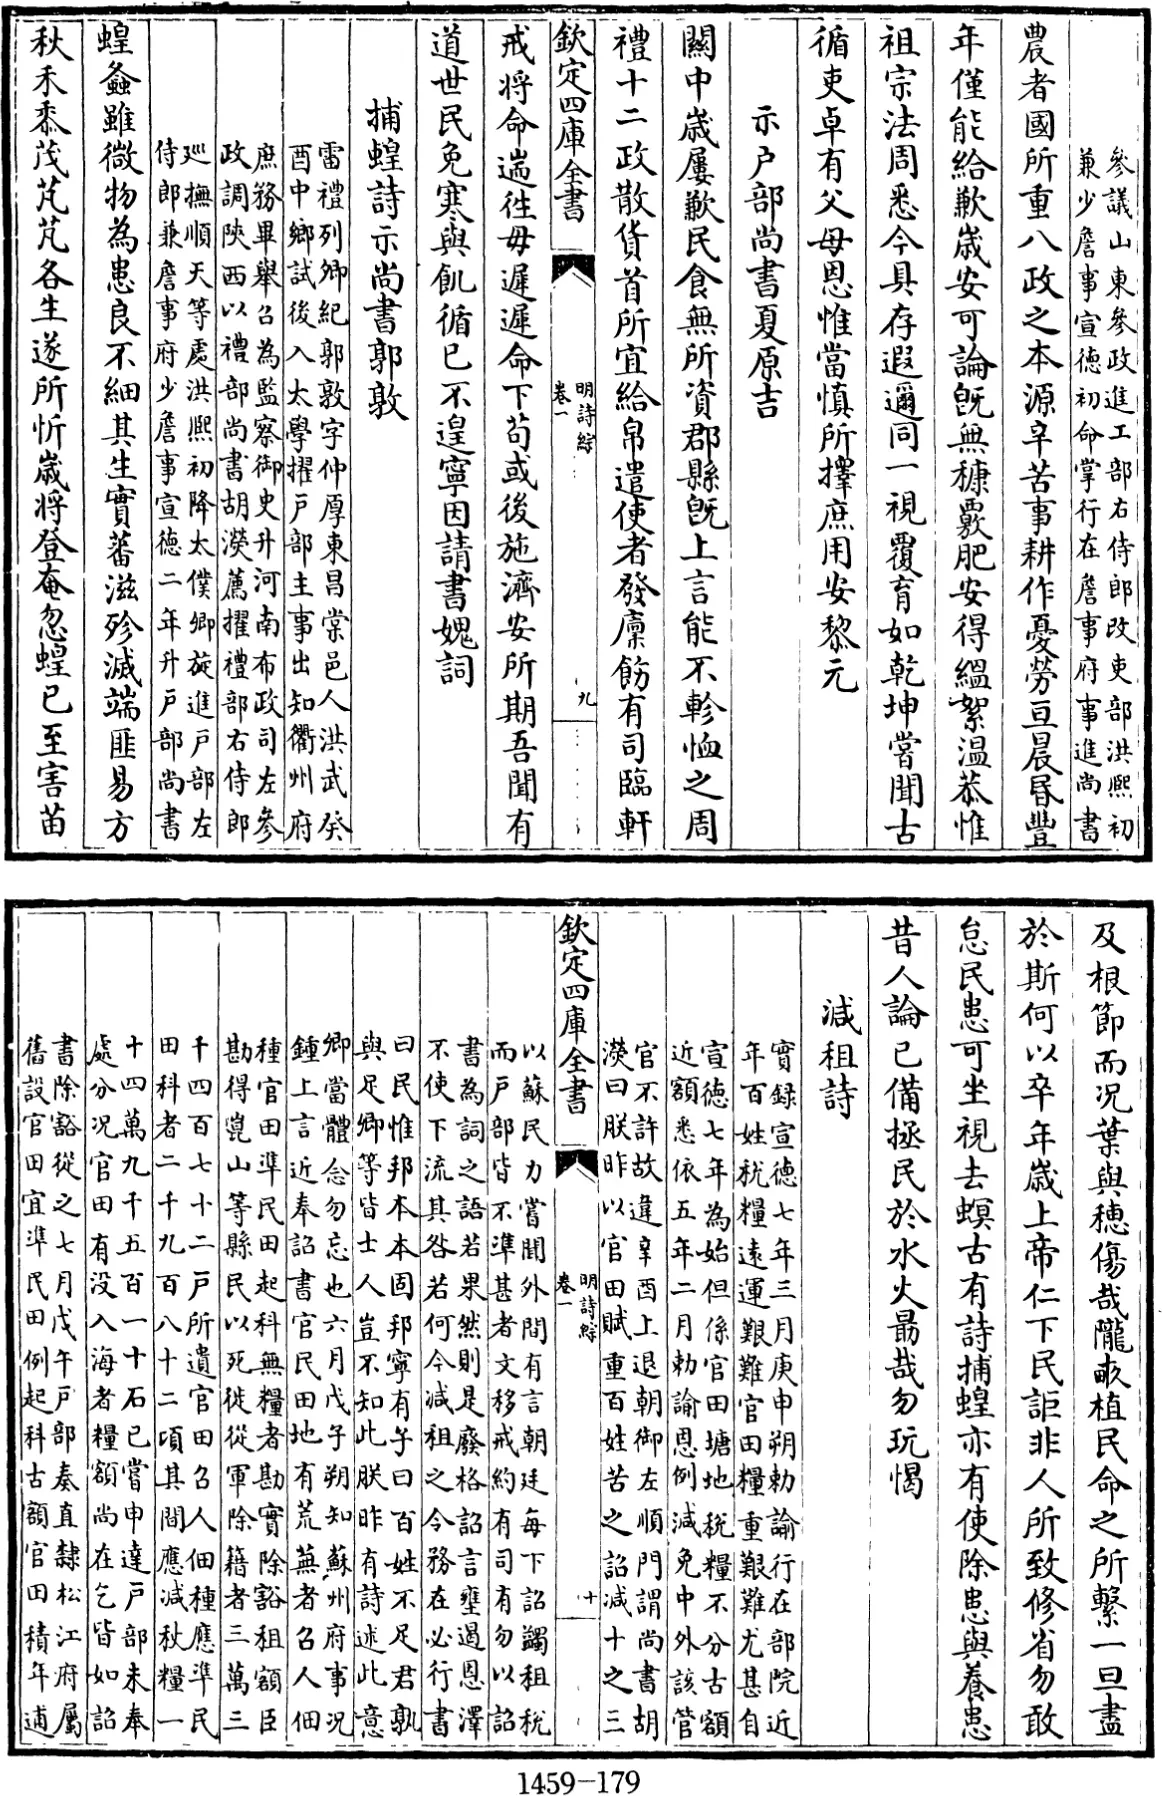 參議山東參政進工部右侍郎改吏部洪熙初
兼少詹事宣德初命掌行在詹事府事進尚書
農者國所重八政之本源辛苦事耕作憂勞亘晨昏豐
年僅能給歉歲安可論既無穅覈肥安得緼絮温恭惟
祖宗法周悉今具存遐邇同一視覆育如乾坤嘗聞古
循吏卓有父母恩惟當慎所擇庶用安黎元
示户部尚書夏原吉
關中歲屢歉民食無所資郡縣既上言能不軫恤之周
禮十二政散貨首所宜給帛遣使者發廩飭有司臨軒
欽定四庫全書
明詩綜
卷一
九
戒將命遄往毋遲遲命下苟或後施濟安所期吾聞有
道世民免寒與飢循已不遑寧因請書媿詞
捕蝗詩示尚書郭敦
雷禮列卿紀郭敦字仲厚東昌棠邑人洪武癸
酉中鄉試後入太學擢户部主事出知衢州府
庶務畢舉召為監察御史升河南布政司左參
政調陝西以禮部尚書胡濙薦擢禮部右侍郎
廵撫順天等處洪熙初降太僕卿旋進户部左
侍郎兼詹事府少詹事宣德二年升户部尚書
蝗螽雖微物為患良不細其生實蕃滋殄滅端匪易方
秋禾黍茂芃芃各生遂所忻歲將登奄忽蝗已至害苗
及根節而況葉與穗傷哉隴畝植民命之所繫一旦盡
於斯何以卒年歲上帝仁下民詎非人所致修省勿敢
怠民患可坐視去螟古有詩捕蝗亦有使除患與養患
昔人論已備拯民於水火勗哉勿玩愒
減租詩
實録宣德七年三月庚申朔勅諭行在部院近
年百姓稅糧遠運艱難官田糧重艱難尤甚自
宣德七年為始但係官田塘地稅糧不分古額
近額悉依五年二月勅諭恩例減免中外該管
官不許故違辛酉上退朝御左順門謂尚書胡
濙曰朕昨以官田賦重百姓苦之詔減十之三
欽定四庫全書
明詩綜
卷一
十
以蘇民力嘗聞外間有言朝廷每下詔蠲租稅
而户部皆不準甚者文移戒約有司有勿以詔
書為詞之語若果然則是廢格詔言壅遏恩澤
不使下流其咎若何今減租之令務在必行書
曰民惟邦本本固邦寧有子曰百姓不足君孰
與足卿等皆士人豈不知此朕昨有詩述此意
卿當體念勿忘也六月戊子朔知蘇州府事況
鍾上言近奉詔書官民田地有荒蕪者召人佃
種官田準民田起科無糧者勘實除豁租額臣
勘得崑山等縣民以死徙從軍除籍者三萬三
千四百七十二户所遺官田召人佃種應準民
田科者二千九百八十二頃其間應減秋糧一
十四萬九千五百一十石已嘗申達户部未奉
處分況官田有没入海者糧額尚在乞皆如詔
書除豁從之七月戊午户部奏直隸松江府屬
舊設官田宜準民田例起科古額官田積年逋
1459—179